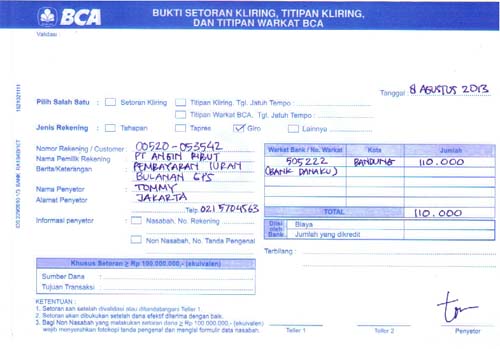 BCA
BUKTI SETORAN KLIRING, TITIPAN KLIRING,
DAN TITIPAN WARKAT BCA
Validasi
Tanggal 8 AGUSTUS 2013
Pilih Salah Satu : Setoran Kliring Titipan Kliring, Tgl. Jatuh Tempo :
Titipan Warkat BCA, Tgl. Jatuh Tempo :
Jenis Rekening : Tahapan Tapres Giro Lainnya :
Nomor Rekening / Customer : 00520-053542
Nama Pemilik Rekening : PT ANGIN RIBUT
Berita/Keterangan : PEMBAYARAN IURAN
BULANAN GPS
Nama Penyetor : TOMMY
Alamat Penyetor : JAKARTA
Telp. 0215704563
Informasi penyetor : Nasabah, No. Rekening :
Non Nasabah, No. Tanda Pengenal
Warkat Bank / No. Warkat Kota Jumlah
505222 BANDUNG 110.000
(BANK DANAKU)
TOTAL 110.000
Diisi oleh Bank Biaya
Jumlah yang dikredit
Terbilang :
Khusus Setoran ≥ Rp 100.000.000,- (ekuivalen)
Sumber Dana :
Tujuan Transaksi :
KETENTUAN :
1. Setoran sah setelah divalidasi atau ditandatangani Teller 1.
2. Setoran akan dibukukan setelah dana efektif diterima dengan baik.
3. Bagi Non Nasabah yang melakukan setoran dana ≥ Rp 100.000.000,- (ekuivalen)
wajib menyerahkan fotokopi tanda pengenal dan mengisi formulir data nasabah.
Teller 1 Teller 2 Penyetor